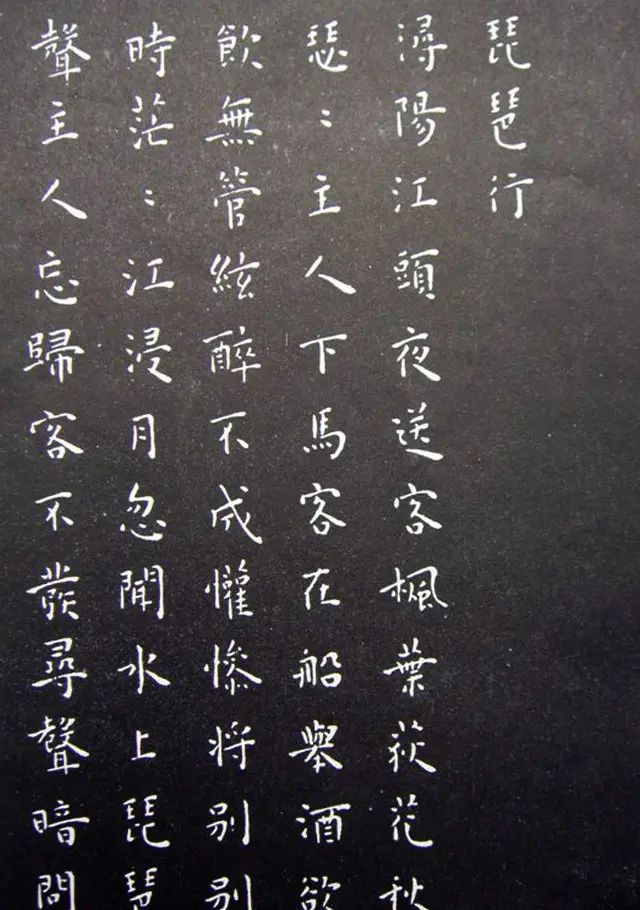 琵琶行
潯陽江頭夜送客楓葉荻花秋
瑟：主人下馬客在船舉酒欲
飲無管絃醉不成懽慘将别别
時茫：江浸月忽聞水上琵琶
聲主人忘歸客不發尋聲暗問